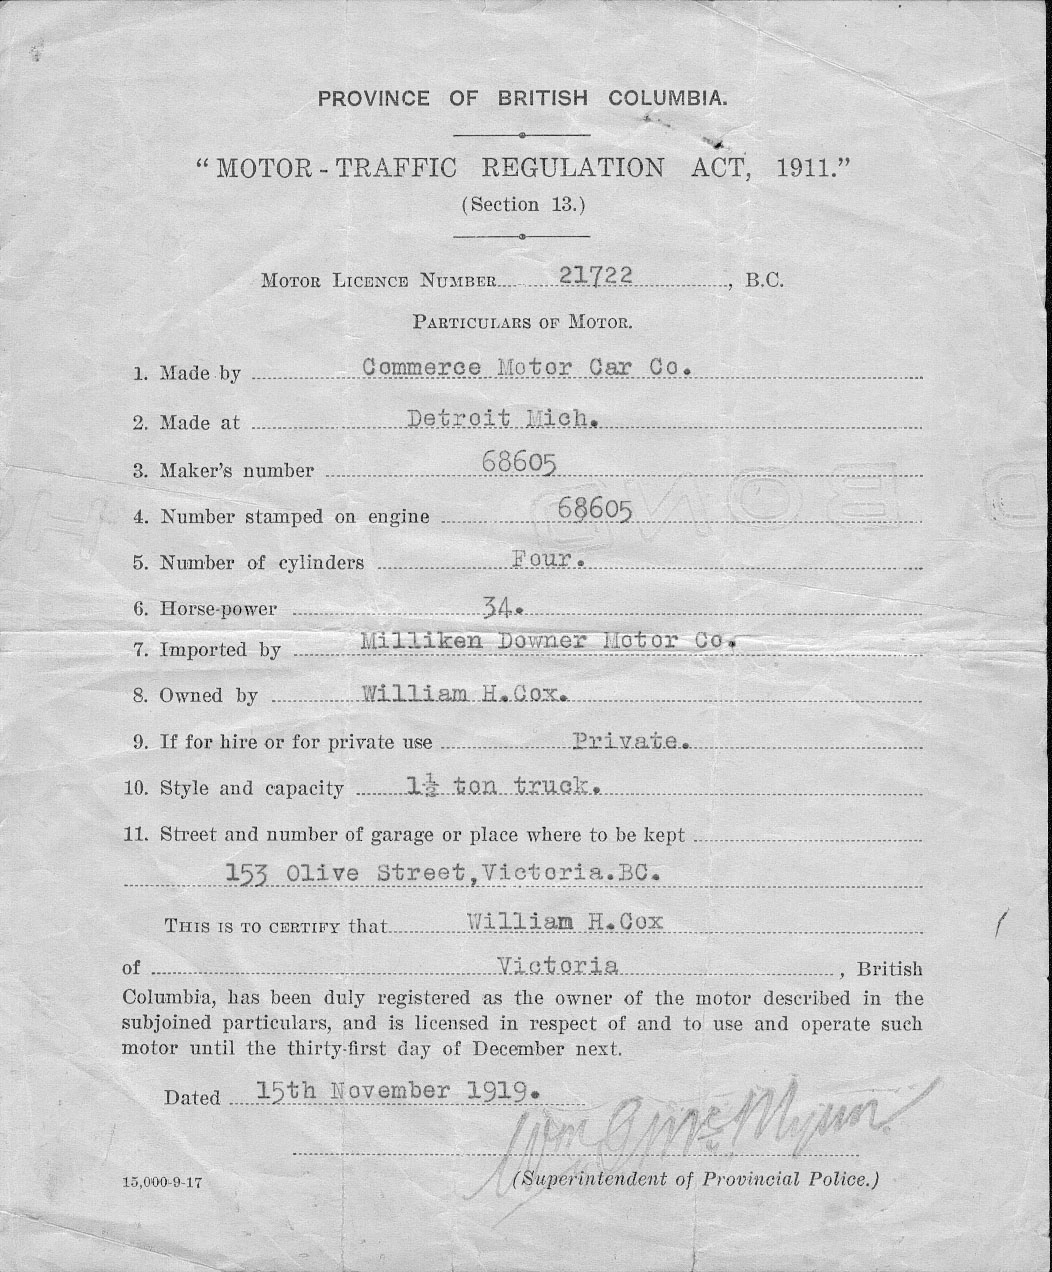 PROVINCE OF BRITISH COLUMBIA.
"MOTOR-TRAFFIC REGULATION ACT, 1911."
(Section 13.)
MOTOR LICENCE NUMBER 21722, B.C.
PARTICULARS OF MOTOR.
1. Made by Commerce Motor Car Co.
2. Made at Detroit Mich.
3. Maker's number 68605
4. Number stamped on engine 68605
5. Number of cylinders Four.
6. Horse-power 34.
7. Imported by Milliken Downer Motor Co.
8. Owned by William H.Cox.
9. If for hire or for private use Private.
10. Style and capacity 1½ ton truck.
11. Street and number of garage or place where to be kept
153 Olive Street,Victoria.BC.
THIS IS TO CERTIFY that William H.Cox
of Victoria, British
Columbia, has been duly registered as the owner of the motor described in the
subjoined particulars, and is licensed in respect of and to use and operate such
motor until the thirty-first day of December next.
Dated 15th November 1919.
Wm G McMynn.
15,000-9-17 (Superintendent of Provincial Police.)